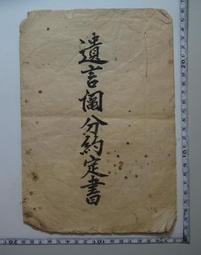 遺言鬮分約定書